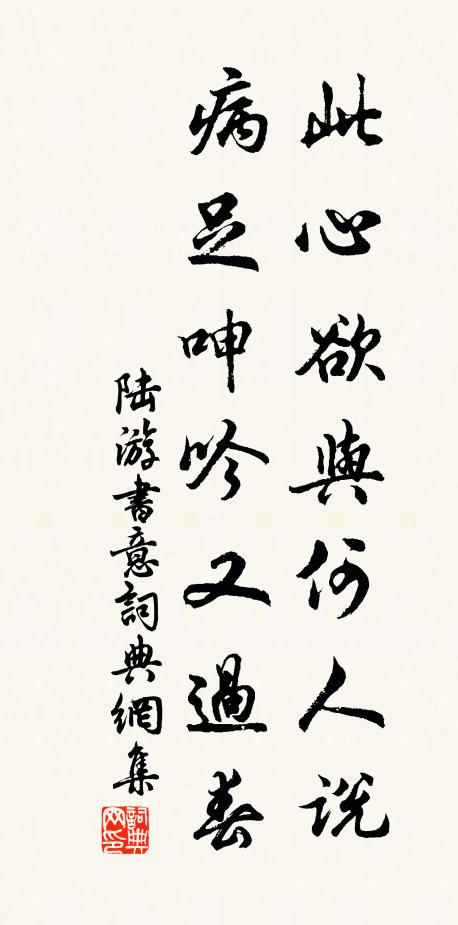 此心欲與何人說
病足呻吟又過春
陸游書意詞典網集
詞典网印